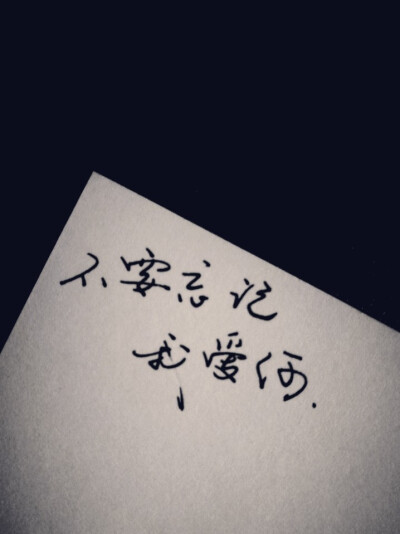 不要忘记
我爱你.